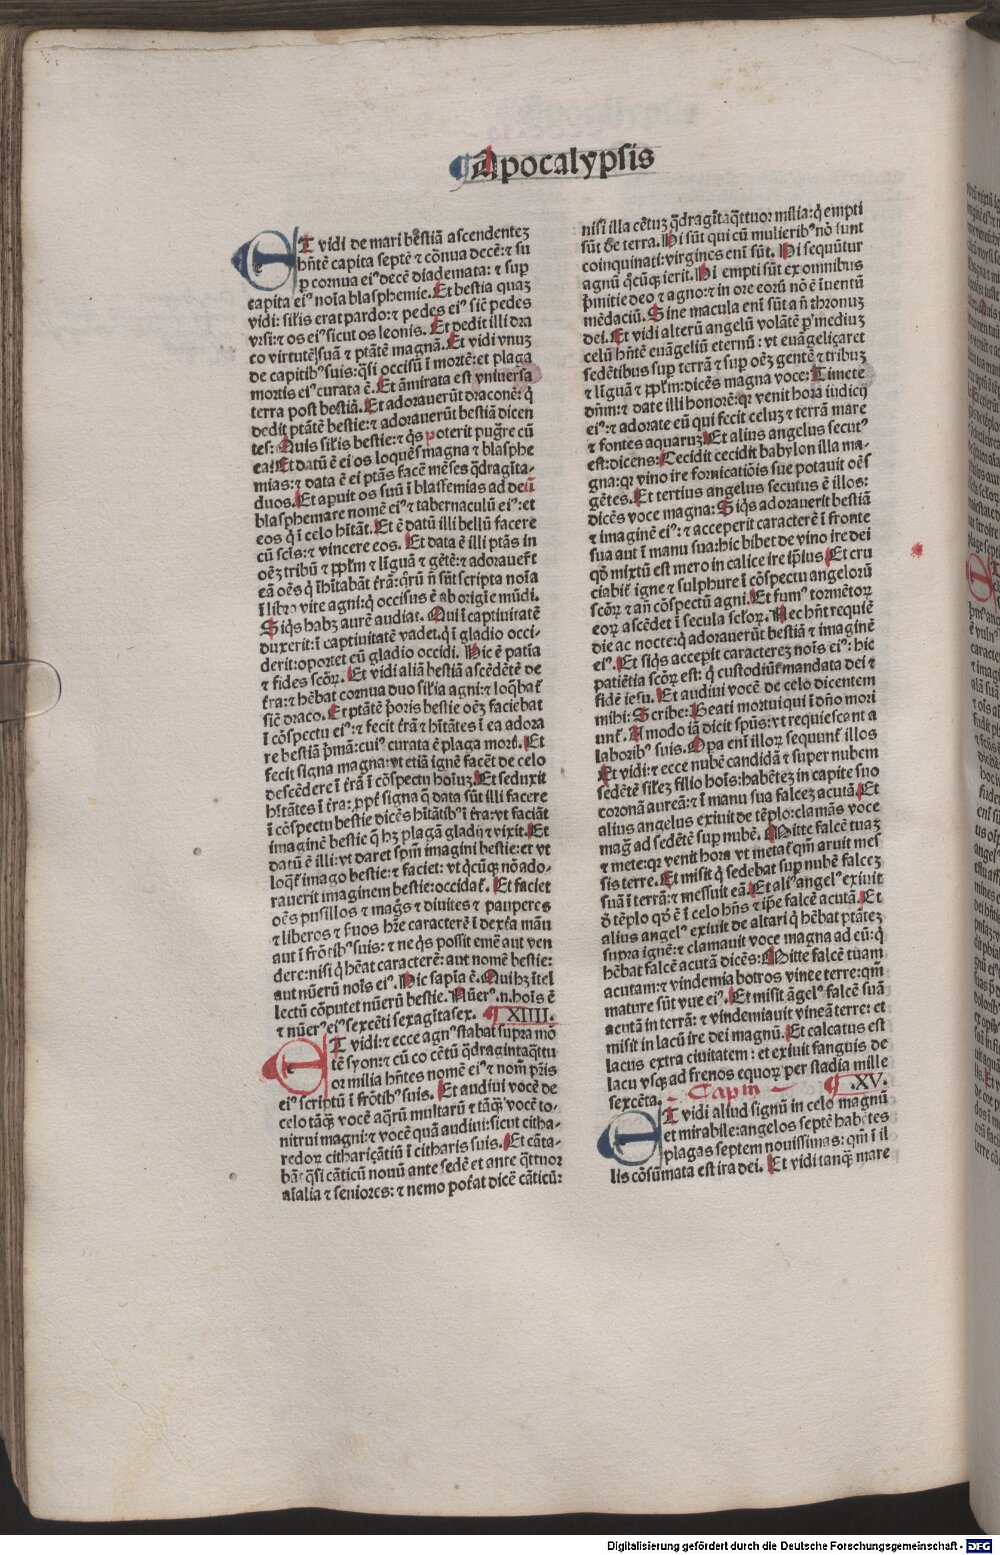 Apocalypsis
ET vidi de mari bestiā ascendentez
hn̄tē capita septē ⁊ cōnua decē: ⁊ su
ꝑ cornua eiꝰ decē diademata: ⁊ suꝑ
capita eiꝰ noīa blasphemie. Et bestia quaz
vidi: silis erat pardo: ⁊ pedes eiꝰ sic̄ pedes
vrsi: ⁊ os eiꝰ sicut os leonis. Et dedit illi dra
co virtutē suā ⁊ ptātē magnā. Et vidi vnuz
de capitibꝰ suis: q̄si occisū ī mortē: et plaga
mortis eiꝰ curata ē. Et āmirata est vniuersa
terra post bestiā. Et adorauerūt draconē: q̇
dedit ptātē bestie: ⁊ adorauerūt bestiā dicen
tes: Quis silis bestie: ⁊ q̇s poterit pug̃re cū
ea? Et datū ē ei os loquēs magna ⁊ blasphe
mias: ⁊ data ē ei ptās facē mēses q̄dragīta-
duos. Et aꝑuit os suū ī blasfemias ad deū
blasphemare nomē eiꝰ ⁊ tabernaculū eiꝰ: et
eos q̇ ī celo hītāt. Et ē datū illi bellū facere
cū scīs: ⁊ vincere eos. Et data ē illi ptās in
oēz tribū ⁊ pp̄lm ⁊ līguā ⁊ gētē: ⁊ adorauer̄t
eā oēs q̇ īhītabāt t̄rā: qꝝ nō sūt scripta noīa
ī libro vite agni: q̇ occisus ē ab origīe mūdi.
Siq̇s habz aurē audiat. Qui ī captiuitatē
duxerit: ī captiuitatē vadet. q̇ ī gladio occi-
derit: oportet eū gladio occidi. Hic ē patīa
⁊ fides scōꝝ. Et vidi aliā bestiā ascēdētē de
t̄ra: ⁊ hēbat cornua duo silia agni: ⁊ loq̄bat̄
sic̄ draco. Et ptātē p̄oris bestie oēz faciebat
ī cōspectu eiꝰ: ⁊ fecit t̄rā ⁊ hītātes ī ea adora
re bestiā p̄mā: cuiꝰ curata ē plaga mort̄. Et
fecit signa magna: vt etiā ignē facēt de celo
descēdere ī t̄rā ī cōspectu hoīuz. Et seduxit
hītātes ī t̄ra: ꝓpt̄ signa q̄ data sūt illi facere
ī cōspectu bestie dicēs hītātibꝰ ī t̄ra: vt faciāt
imaginē bestie q̄ hz plagā gladij ⁊ vixit. Et
datū ē illi: vt daret spm̄ imagini bestie: et vt
loq̄t̄ imago bestie: ⁊ faciet: vt q̇cūq̨ nō ado-
rauerit imaginem bestie: occidat̄. Et faciet
oēs pusillos ⁊ mag̃s ⁊ diuites ⁊ pauperes
⁊ liberos ⁊ s̄uos hr̄e caracterē ī dext̄a māu
aut ī frōtibꝰ suis: ⁊ ne q̇s possit emē aut ven
dere: nisi q̇ hēat caracterē: aut nomē bestie:
aut nūerū noīs eiꝰ. Hic sapīa ē. Qui hz ītel
lectū cōputet nūerū bestie. Nūerꝰ .n. hoīs ē
⁊ nūerꝰ eiꝰ sexcēti sexagīta sex. XIIII.
ET vidi: ⁊ ecce agnꝰ stabat supra mō
tē syon: ⁊ cū eo cētū q̄dragīntaq̄ttu
or milia hn̄tes nomē eiꝰ ⁊ nom̄ pr̄is
eiꝰ scriptū ī frōtibꝰ suis. Et audiui vocē de
celo tāq̄ vocē aq̄rū multarū ⁊ tāq̄ vocē to-
nitrui magni: ⁊ vocē quā audiui: sicut citha-
redoꝝ chithariçātiū ī citharis suis. Et cāta-
bāt q̄si cāticū nouū ante sedē et ante q̄ttuor
aīalia ⁊ seniores: ⁊ nemo pot̄at dicē cāticū:
nisi illa cētuz q̄dragītaq̄ttuor milia: q̇ empti
sūt de terra. Hi sūt qui cū mulieribꝰ nō sunt
coinquinati: virgines enī sūt. Hi sequūtur
agnū q̄cūq̨ ierit. Hi empti sūt ex omnibus
p̄mitie deo ⁊ agno: ⁊ in ore eorū nō ē īuentū
mēdaciū. Sine macula enī sūt añ thronuz
dei. Et vidi alterū angelū volātē ꝑ mediuz
celū hn̄tē euāgeliū eternū: vt euāgeliçaret
sedētibus suꝑ terrā ⁊ suꝑ oēz gentē ⁊ tribuz
⁊ līguā ⁊ pp̄lm: dicēs magna voce: Timete
dn̄m: ⁊ date illi honorē: qꝛ venit hora iudicij
eiꝰ: ⁊ adorate eū qui fecit celuz ⁊ terrā mare
⁊ fontes aquaruz. Et alius angelus secutꝰ
est: dicens: Cecidit cecidit babylon illa ma-
gna: qꝛ vino ire fornicatiōis sue potauit oēs
gētes. Et tertius angelus secutus ē illos:
dicēs voce magna: Siq̇s adorauerit bestiā
⁊ imaginē eiꝰ: ⁊ acceperit caracterē ī fronte
sua aut ī manu sua: hic bibet de vino ire dei
qd̄ mixtū est mero in calice ire ip̄ius. Et cru
ciabit̄ igne ⁊ sulphure ī cōspectu angelorū
scōꝝ ⁊ añ cōspectū agni. Et fumꝰ tormētoꝝ
eoꝝ ascēdet ī secula scl̄oꝝ. Nec hn̄t requiē
die ac nocte: q̇ adorauerūt bestiā ⁊ imaginē
eiꝰ. Et siq̇s acceꝑit caracterez noīs eiꝰ: hic
patiētia scōꝝ est: q̇ custodiūt mandata dei ⁊
fidē iesu. Et audiui vocē de celo dicentem
mihi: Scribe: Beati mortui qui ī dn̄o mori
unt̄. A modo iā dicit spūs: vt requiescant a
laboribꝰ suis. Opa enī illoꝝ sequunt̄ illos
Et vidi: ⁊ ecce nubē candidā ⁊ super nubem
sedētē silez filio hoīs: habētez in capite suo
coronā aureā: ⁊ ī manu sua falcez acutā. Et
alius angelus exiuit de tēplo: clamās voce
mag̃ ad sedētē suꝑ nubē. Mitte falcē tuaz
⁊ mete: qꝛ venit hora vt metat̄ qm̄ aruit mes
sis terre. Et misit q̇ sedebat suꝑ nubē falcez
suā ī terrā: ⁊ messuit eā. Et aliꝰ angelꝰ exiuit
d̄ tēplo qd̄ ē ī celo hn̄s ⁊ ip̄e falcē acutā. Et
alius angelꝰ exiuit de altari q̇ hēbat ptātez
supra ignē: ⁊ clamauit voce magna ad eū: q̇
hēbat falcē acutā dicēs: Mitte falcē tuam
acutam: ⁊ vindemia botros vinee terre: qm̄
mature sūt vue eiꝰ. Et misit āgelꝰ falcē suā
acutā in terrā: ⁊ vindemiauit vineā terre: et
misit in lacū ire dei magnū. Et calcatus est
lacus extra ciuitatem: et exiuit sanguis de
lacu vsq̨ ad frenos equoꝝ per stadia mille
sexcēta. Capm .XV.
ET vidi aliud signū in celo magnū
et mirabile: angelos septē habētes
plagas septem nouissimas: qm̄ ī il
lis cōsūmata est ira dei. Et vidi tanq̄ mare
Digitalisierung gefördert durch die Deutsche Forschungsgemeinschaft - DFG